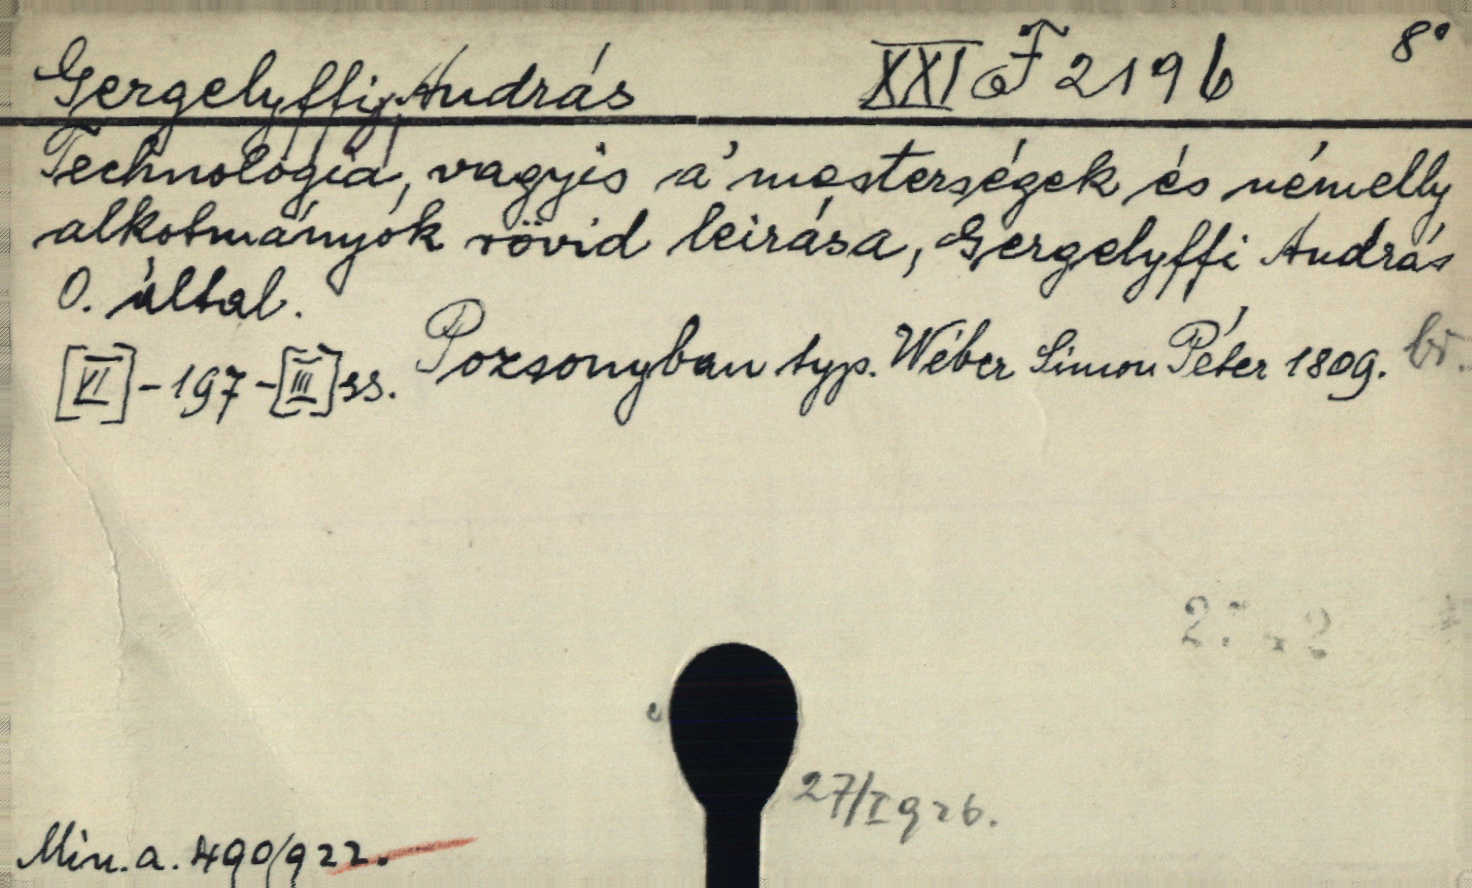 Gergelyffi, András XXI F 2196 8°
Technologia, vagyis a' mesterségek és némelly
alkotmányok rövid leirása, Gergelyffi András
O. által.
[VI]-197-[III] ss. Pozsonyban typ. Wéber Simon Péter 1809. br.
27/I 926.
Min. a. 490/922.